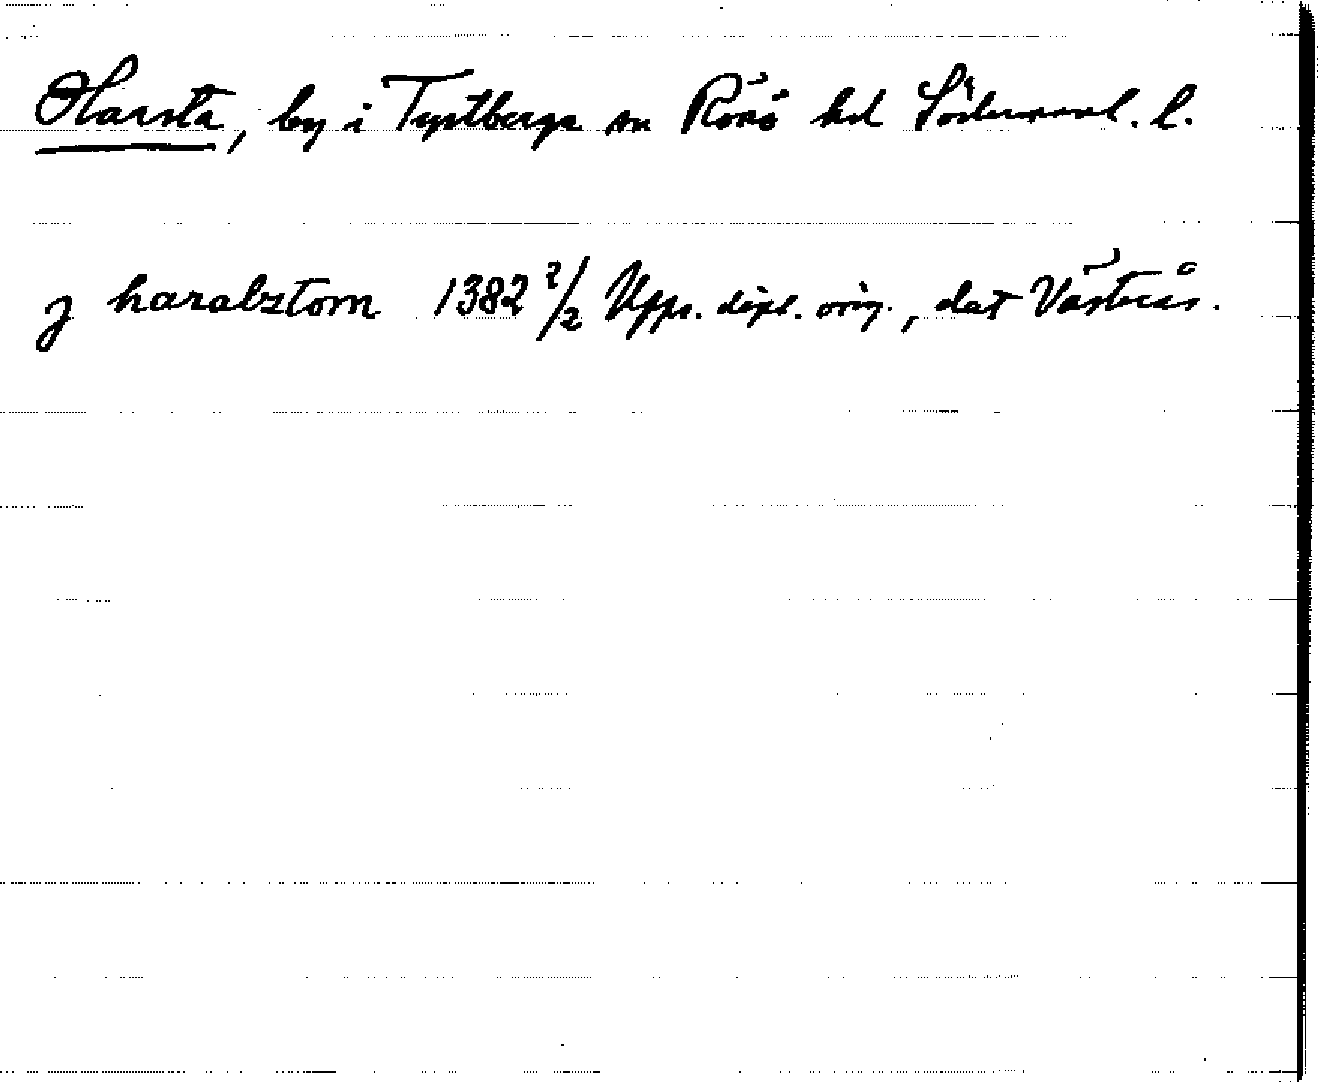 Harsta, by i Tystberga sn Rönö hd Södermanl. l.
j haralztom 1382 2/2 Upps. dipl. orig., dat Västerås.